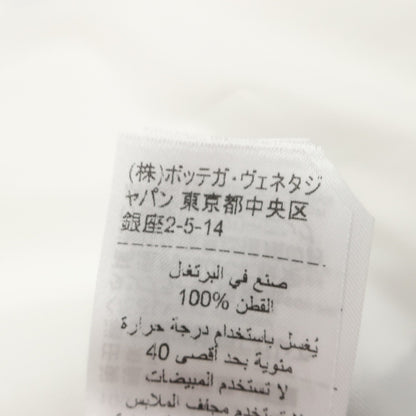 (株)ボッテガ・ヴェネタジ
ャパン 東京都中央区
銀座2-5-14
صنع في البرتغال
القطن 100%
يُغسل باستخدام درجة حرارة
مئوية بحد أقصى 40
لا تستخدم المبيضات
تستخدم مجفف الملابس